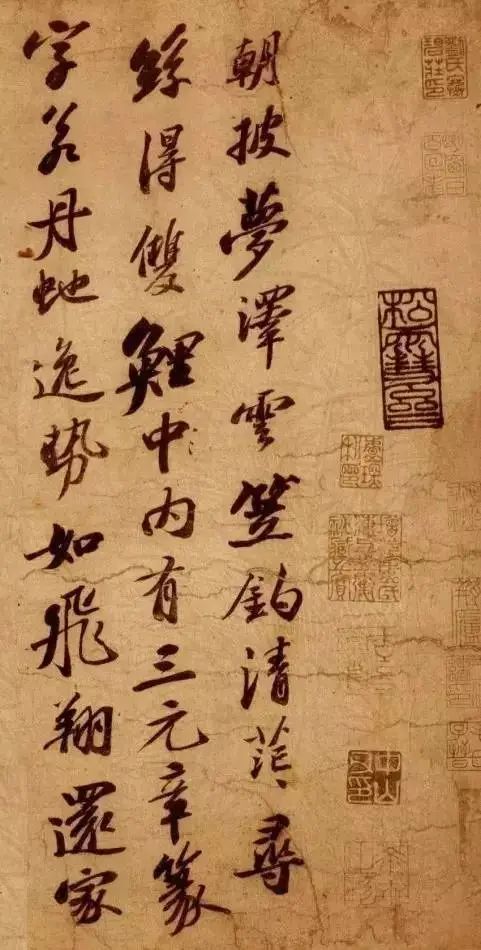 松雪齋
朝披夢澤雲笠釣清茫〻尋
絲得雙鯉中內有三元章篆
字若丹虵逸勢如飛翔還家